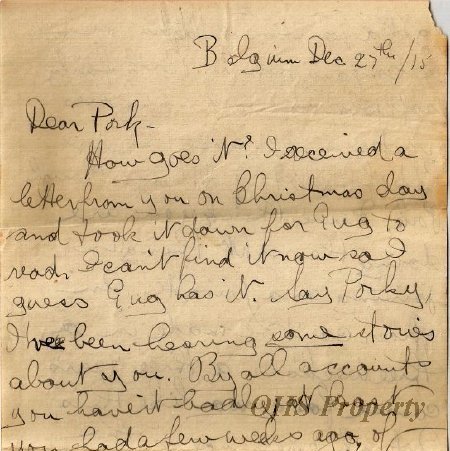 Belgium Dec 27th/15
Dear Pork-
How goes it. I received a
letter from you on Christmas day
and took it down for Pug to
read. I can't find it now so I
guess Pug has it. Say Porky,
I've been hearing some stories
about you. By all accounts
you have it bad
QHS Property
you had a few weeks ago, of